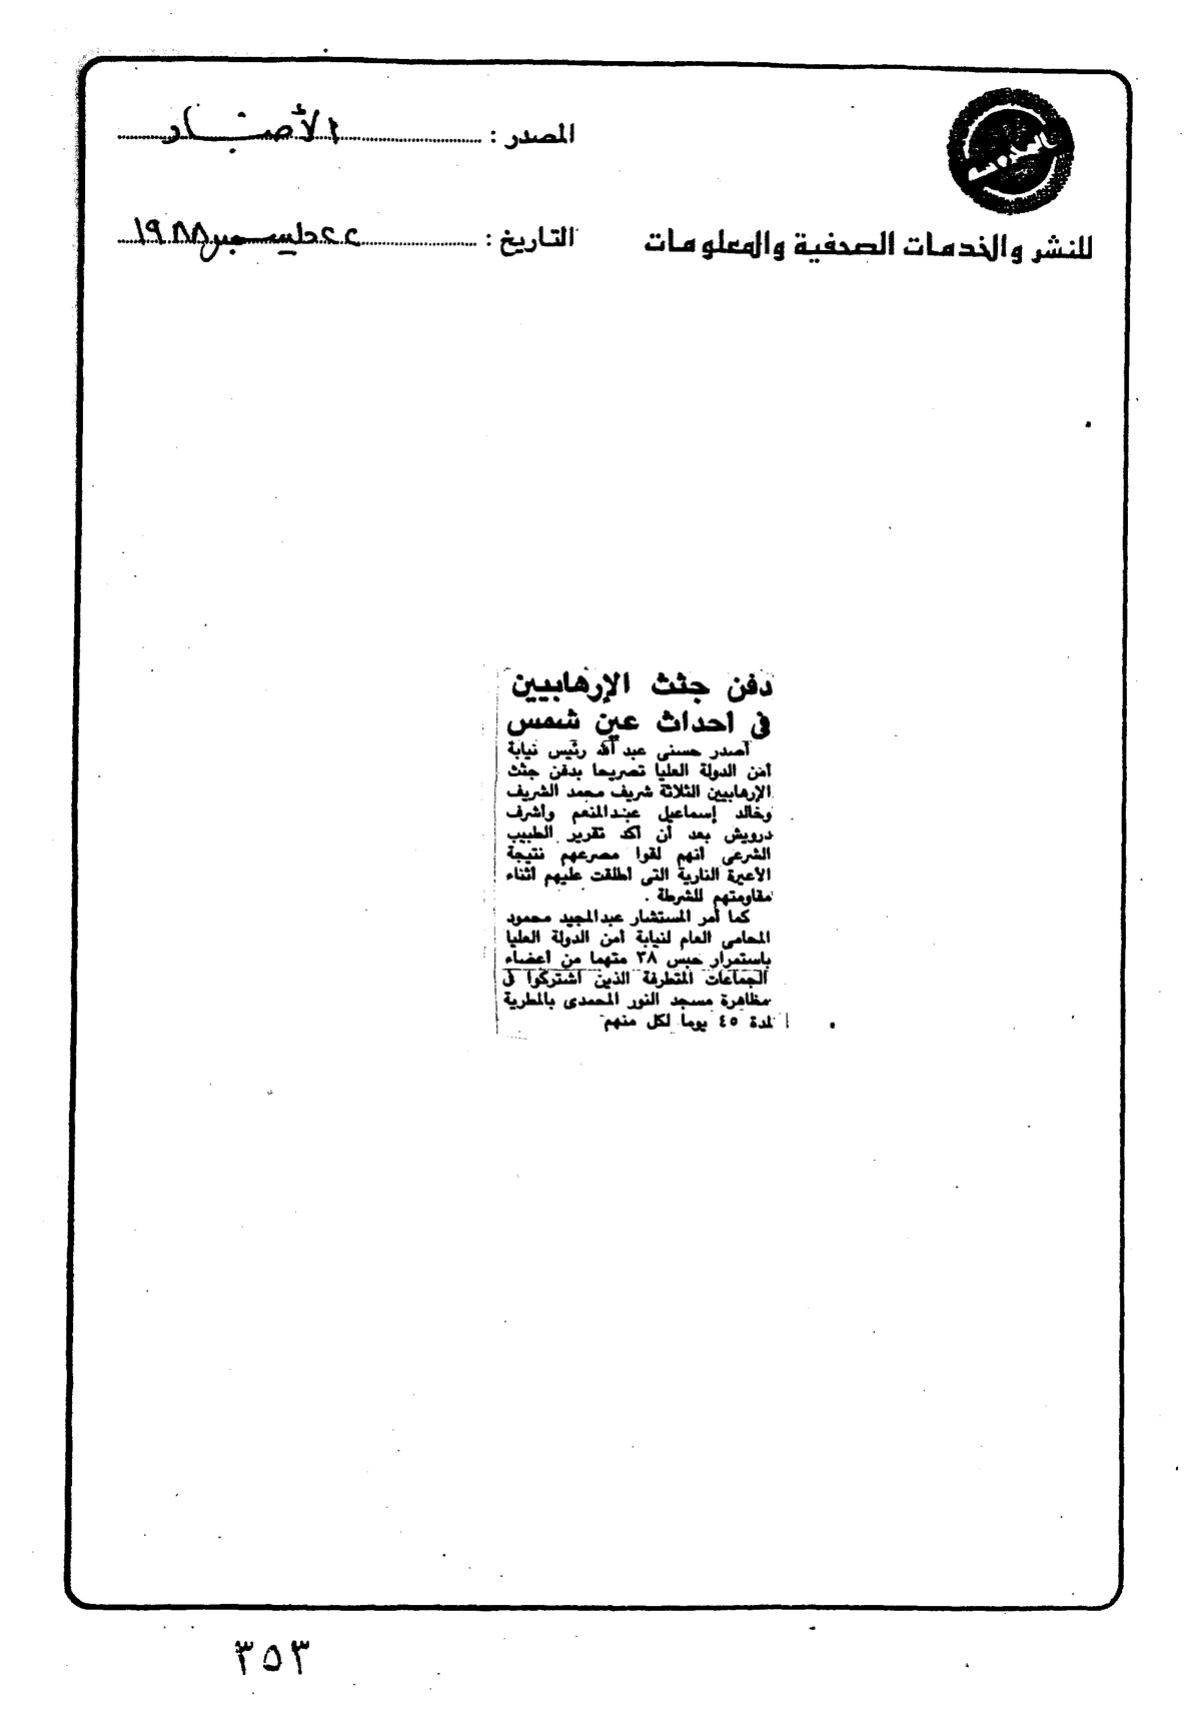 المصدر : الأخبار
للنشر والخدمات الصحفية والمعلومات
التاريخ : ٢٢ ديسمبر ١٩٨٨
دفن جثث الإرهابيين
في احداث عين شمس
أصدر حسنى عبد الله رئيس نيابة
أمن الدولة العليا تصريحا بدفن جثث
الإرهابيين الثلاثة شريف محمد الشريف
وخالد إسماعيل عبدالمنعم وأشرف
درويش بعد أن أكد تقرير الطبيب
الشرعى أنهم لقوا مصرعهم نتيجة
الأعيرة النارية التى أطلقت عليهم أثناء
مقاومتهم للشرطة .
كما أمر المستشار عبدالمجيد محمود
المحامى العام لنيابة أمن الدولة العليا
باستمرار حبس ٣٨ متهما من أعضاء
الجماعات المتطرفة الذين اشتركوا فى
مظاهرة مسجد النور المحمدى بالمطرية
لمدة ٤٥ يوما لكل منهم
٣٥٣